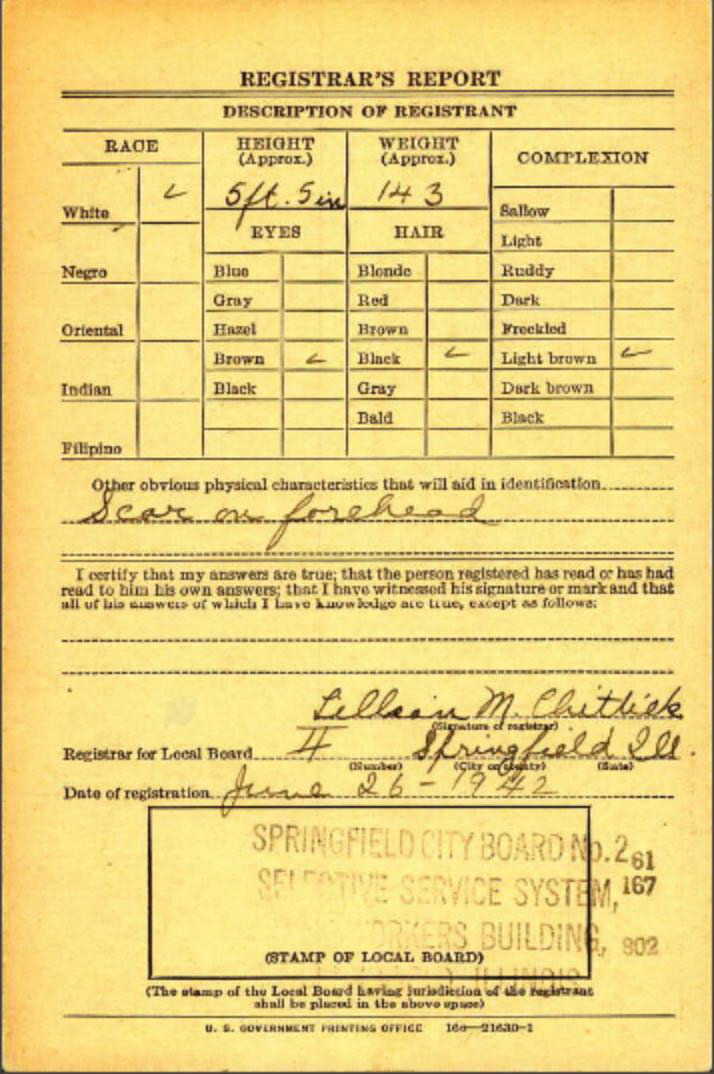 REGISTRAR'S REPORT
DESCRIPTION OF REGISTRANT
RACE
HEIGHT (Approx.)
WEIGHT (Approx.)
COMPLEXION
White ✓
5ft. 5in
143
Sallow
EYES
HAIR
Light
Negro
Blue
Blonde
Ruddy
Gray
Red
Dark
Oriental
Hazel
Brown
Freckled
Brown ✓
Black ✓
Light brown ✓
Indian
Black
Gray
Dark brown
Bald
Black
Filipino
Other obvious physical characteristics that will aid in identification
Scar on forehead
I certify that my answers are true; that the person registered has read or has had
read to him his own answers; that I have witnessed his signature or mark and that
all of his answers of which I have knowledge are true, except as follows:
Lillian M. Chittick
(Signature of registrar)
Registrar for Local Board 4 Springfield Ill.
(Number) (City or county) (State)
Date of registration June 26-1942
SPRINGFIELD CITY BOARD No. 2 61
SELECTIVE SERVICE SYSTEM, 167
WORKERS BUILDING, 902
(STAMP OF LOCAL BOARD)
ILLINOIS
(The stamp of the Local Board having jurisdiction of the registrant
shall be placed in the above space)
U. S. GOVERNMENT PRINTING OFFICE 16—21630-1